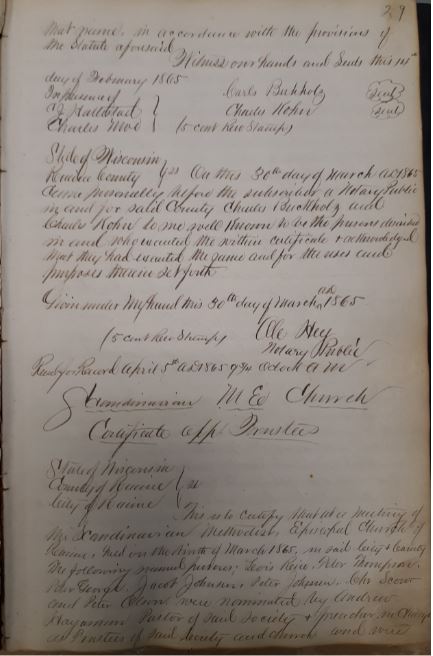 29
that name, in accordance with the provisions of
the Statute aforesaid
Witness our hands and Seals this 1st
day of February 1865
In presence of
Carls Buckholz (Seal)
C J
Charles Kohn (Seal)
Charles
(5 cent Rev Stamps)
State of Wisconsin
Racine County } ss On this 30th day of March AD 1865
came personally before the subscriber a Notary Public
in and for said County Charles Buckholz and
Charles Kohn to me well known to be the persons described
in and who executed the within certificate & acknowledged
that they had executed the same and for the uses and
purposes therein set forth
Given under my hand this 30th day of March AD 1865
(5 cent Rev Stamps) Ole Hey
Notary Public
Recd for Record April 5th AD 1865 9 3/4 oclock AM
Scandinavian M. E. Church
Certificate App Trustees
State of Wisconsin
County of Racine } ss
City of Racine
This is to certify that at a meeting of
the Scandinavian Methodist Episcopal Church of
Racine, held on the Ninth of March 1865, in said City & County
the following named persons; Peter Thompson,
George, Jacob Johnson, Peter Johnson, Chr
and Peter Olson were nominated by Andrew
Haagensen Pastor of said Society & preacher in Charge
as Trustees of said Society and church and were